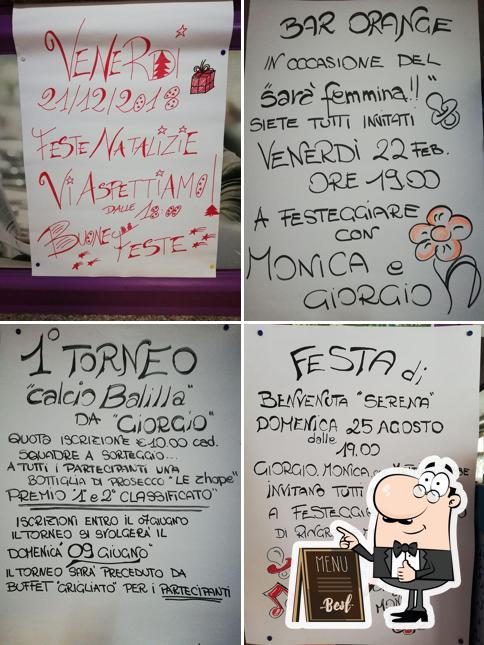 VENERDÌ
21/12/2018
FESTE NATALIZIE
VI ASPETTIAMO!
DALLE 18:00
BUONE FESTE
BAR ORANGE
IN OCCASIONE DEL
"sarà femmina!!"
SIETE TUTTI INVITATI
VENERDÌ 22 FEB.
ORE 19.00
A FESTEGGIARE
CON
MONICA e
GIORGIO
1° TORNEO
"calcio Balilla"
DA "GIORGIO"
QUOTA ISCRIZIONE €10.00 cad.
SQUADRE A SORTEGGIO...
A TUTTI I PARTECIPANTI UNA
BOTTIGLIA DI PROSECCO "LE Zhope"
PREMIO "1 e 2° CLASSIFICATO"
ISCRIZIONI ENTRO IL 07GIUGNO
IL TORNEO SI SVOLGERÀ IL
DOMENICA 09 GIUGNO
IL TORNEO SARÀ PRECEDUTO DA
BUFFET "GRIGLIATO" PER I PARTECIPANTI
FESTA di
BENVENUTA "SERENA"
DOMENICA 25 AGOSTO
dalle
19.00
GIORGIO, MONICA
INVITANO TUTTI
A FESTEGGI
DI RINGR
MENU
Best